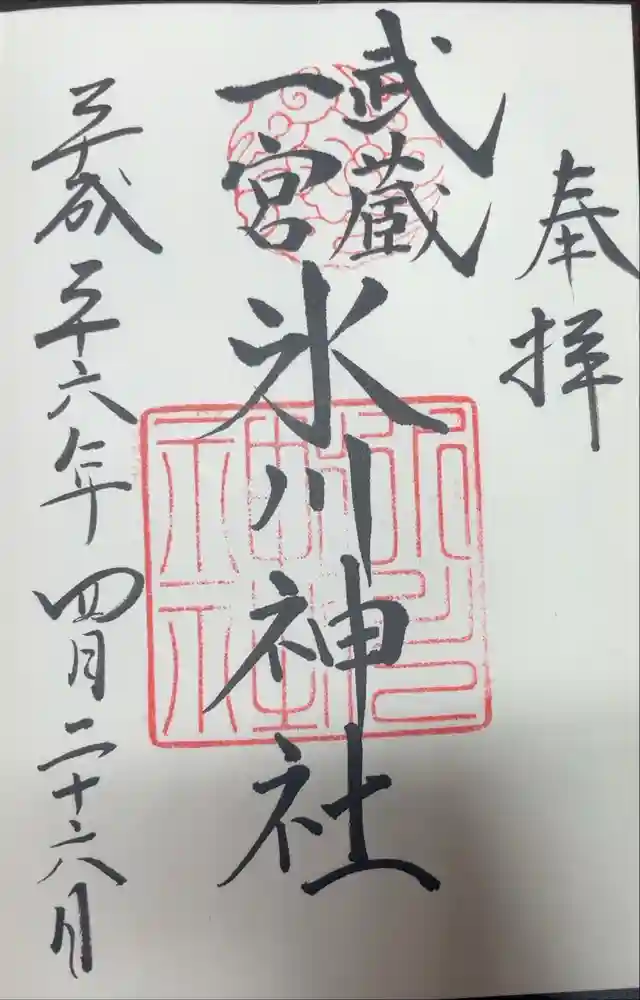 奉拝
武蔵
一宮
氷川神社
平成二十六年四月二十六日
氷川
神社